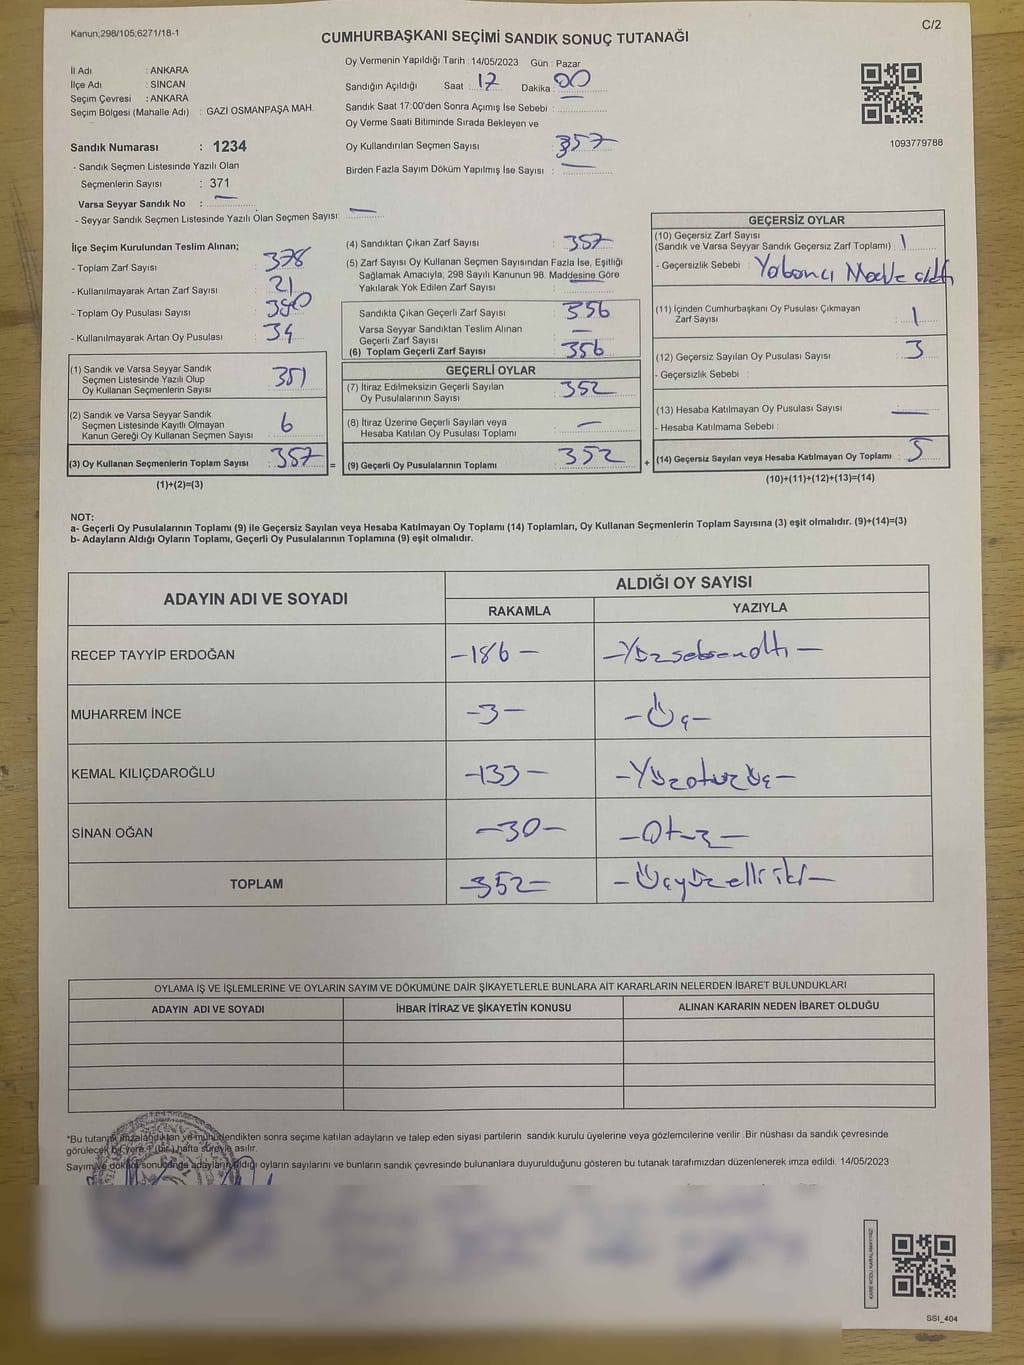 Kanun;298/105;6271/18-1
C/2
CUMHURBAŞKANI SEÇİMİ SANDIK SONUÇ TUTANAĞI
İl Adı : ANKARA
İlçe Adı : SİNCAN
Seçim Çevresi : ANKARA
Seçim Bölgesi (Mahalle Adı) : GAZİ OSMANPAŞA MAH.
Oy Vermenin Yapıldığı Tarih : 14/05/2023 Gün : Pazar
Sandığın Açıldığı Saat 17 Dakika : 00
Sandık Saat 17:00'den Sonra Açımış İse Sebebi :
Oy Verme Saati Bitiminde Sırada Bekleyen ve
Oy Kullandırılan Seçmen Sayısı : 357
Birden Fazla Sayım Döküm Yapılmış İse Sayısı : —
1093779788
Sandık Numarası : 1234
- Sandık Seçmen Listesinde Yazılı Olan
Seçmenlerin Sayısı : 371
Varsa Seyyar Sandık No : —
- Seyyar Sandık Seçmen Listesinde Yazılı Olan Seçmen Sayısı: —
İlçe Seçim Kurulundan Teslim Alınan;
- Toplam Zarf Sayısı : 378
- Kullanılmayarak Artan Zarf Sayısı : 21
- Toplam Oy Pusulası Sayısı : 380
- Kullanılmayarak Artan Oy Pusulası : 34
(1) Sandık ve Varsa Seyyar Sandık
Seçmen Listesinde Yazılı Olup
Oy Kullanan Seçmenlerin Sayısı : 351
(2) Sandık ve Varsa Seyyar Sandık
Seçmen Listesinde Kayıtlı Olmayan
Kanun Gereği Oy Kullanan Seçmen Sayısı : 6
(3) Oy Kullanan Seçmenlerin Toplam Sayısı : 357
(1)+(2)=(3)
=
(4) Sandıktan Çıkan Zarf Sayısı : 357
(5) Zarf Sayısı Oy Kullanan Seçmen Sayısından Fazla İse, Eşitliği
Sağlamak Amacıyla; 298 Sayılı Kanunun 98. Maddesine Göre
Yakılarak Yok Edilen Zarf Sayısı : —
Sandıkta Çıkan Geçerli Zarf Sayısı : 356
Varsa Seyyar Sandıktan Teslim Alınan
Geçerli Zarf Sayısı : —
(6) Toplam Geçerli Zarf Sayısı : 356
GEÇERLİ OYLAR
(7) İtiraz Edilmeksizin Geçerli Sayılan
Oy Pusulalarının Sayısı : 352
(8) İtiraz Üzerine Geçerli Sayılan veya
Hesaba Katılan Oy Pusulası Toplamı : —
(9) Geçerli Oy Pusulalarının Toplamı : 352
+
GEÇERSİZ OYLAR
(10) Geçersiz Zarf Sayısı
(Sandık ve Varsa Seyyar Sandık Geçersiz Zarf Toplamı) : 1
- Geçersizlik Sebebi : Yabancı Madde
(11) İçinden Cumhurbaşkanı Oy Pusulası Çıkmayan
Zarf Sayısı : 1
(12) Geçersiz Sayılan Oy Pusulası Sayısı : 3
- Geçersizlik Sebebi :
(13) Hesaba Katılmayan Oy Pusulası Sayısı : —
- Hesaba Katılmama Sebebi :
(14) Geçersiz Sayılan veya Hesaba Katılmayan Oy Toplamı : 5
(10)+(11)+(12)+(13)=(14)
NOT:
a- Geçerli Oy Pusulalarının Toplamı (9) ile Geçersiz Sayılan veya Hesaba Katılmayan Oy Toplamı (14) Toplamları, Oy Kullanan Seçmenlerin Toplam Sayısına (3) eşit olmalıdır. (9)+(14)=(3)
b- Adayların Aldığı Oyların Toplamı, Geçerli Oy Pusulalarının Toplamına (9) eşit olmalıdır.
ADAYIN ADI VE SOYADI
ALDIĞI OY SAYISI
RAKAMLA YAZIYLA
RECEP TAYYİP ERDOĞAN -186- -Yüzseksenaltı-
MUHARREM İNCE -3- -Üç-
KEMAL KILIÇDAROĞLU -133- -Yüzotuzüç-
SİNAN OĞAN -30- -Otuz-
TOPLAM -352- -Üçyüzelliiki-
OYLAMA İŞ VE İŞLEMLERİNE VE OYLARIN SAYIM VE DÖKÜMÜNE DAİR ŞİKAYETLERLE BUNLARA AİT KARARLARIN NELERDEN İBARET BULUNDUKLARI
ADAYIN ADI VE SOYADI İHBAR İTİRAZ VE ŞİKAYETİN KONUSU ALINAN KARARIN NEDEN İBARET OLDUĞU
*Bu tutanak imzalandıktan ve mühürlendikten sonra seçime katılan adayların ve talep eden siyasi partilerin sandık kurulu üyelerine veya gözlemcilerine verilir .Bir nüshası da sandık çevresinde
görülecek bir yere 1 (bir) hafta süreyle asılır.
Sayım ve döküm sonucunda adayların aldığı oyların sayılarını ve bunların sandık çevresinde bulunanlara duyurulduğunu gösteren bu tutanak tarafımızdan düzenlenerek imza edildi. 14/05/2023
SSI_404